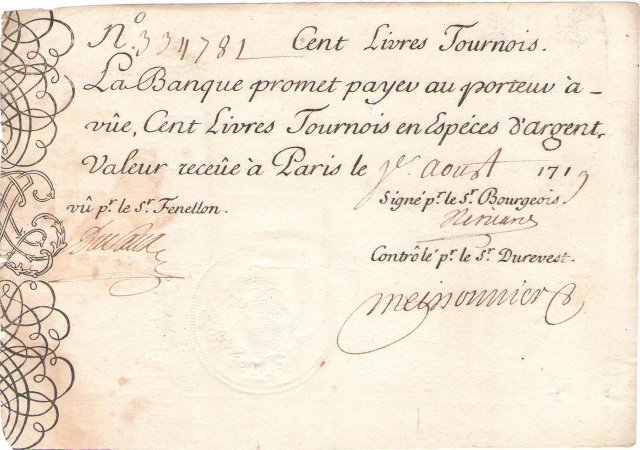 N.º 334781 Cent Livres Tournois.
La Banque promet payer au porteur à
vûe, Cent Livres Tournois en Espéces d'argent,
Valeur receüe à Paris le 1er aoust 1719
vû pr. le Sr. Fenellon.
Signé pr. le Sr. Bourgeois
Contrôlé pr. le Sr. Durevest.
meisonnier